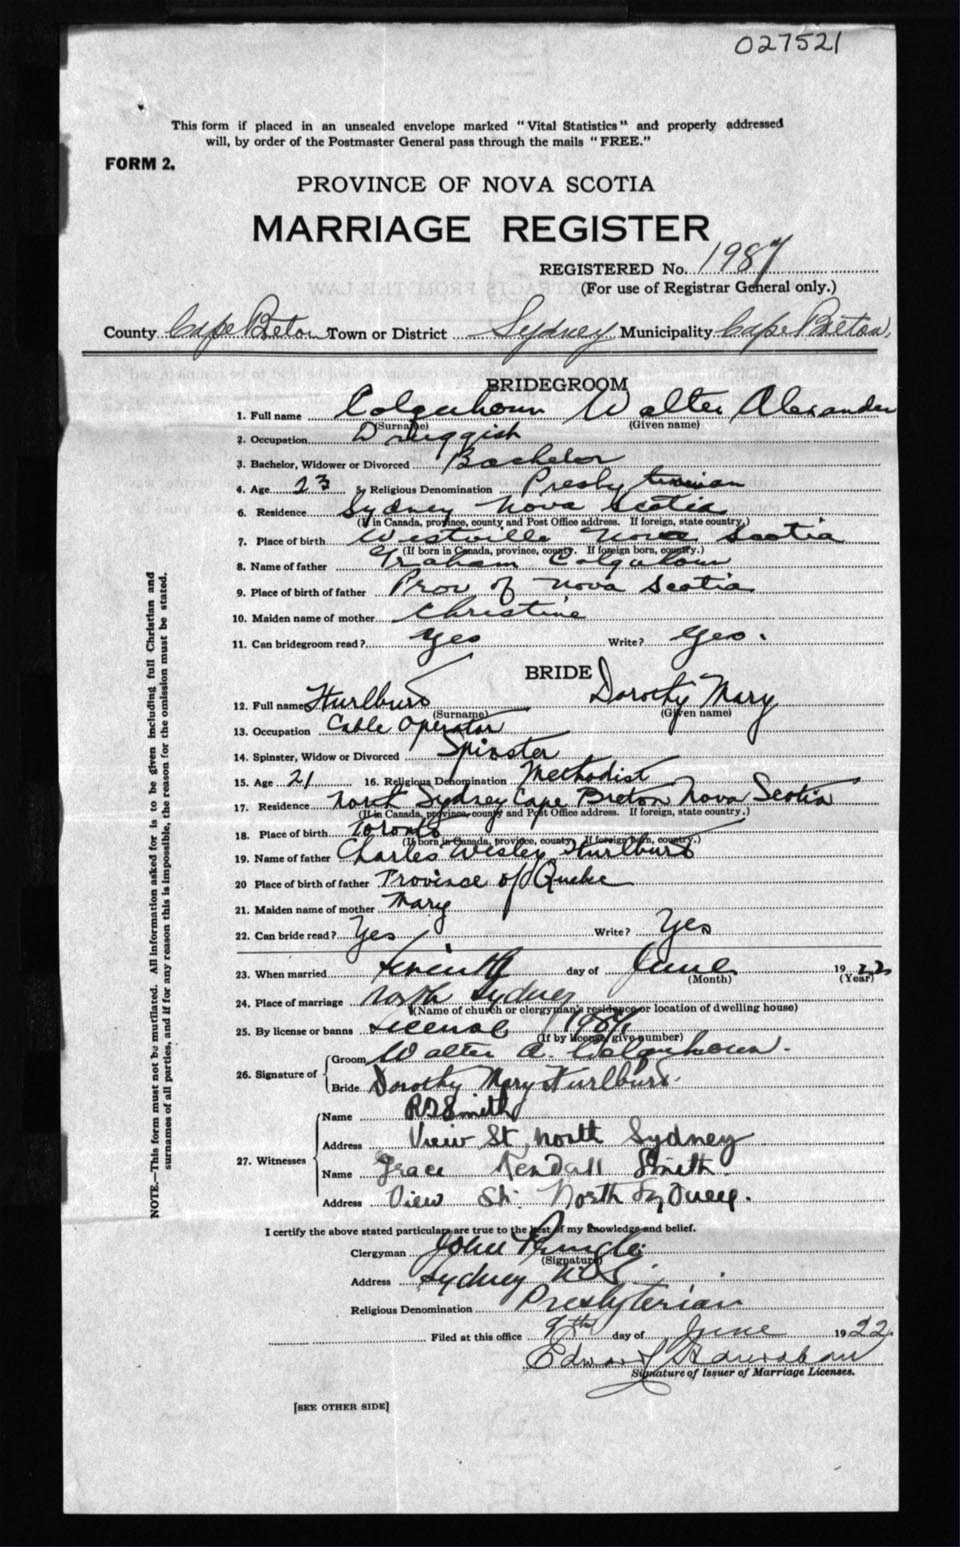 027521
This form if placed in an unsealed envelope marked "Vital Statistics" and properly addressed
will, by order of the Postmaster General pass through the mails "FREE."
FORM 2.
PROVINCE OF NOVA SCOTIA
MARRIAGE REGISTER
REGISTERED No. 1987
(For use of Registrar General only.)
County Cape Breton Town or District Sydney Municipality Cape Breton
BRIDEGROOM
1. Full name Colquhoun Walter Alexander
(Surname) (Given name)
2. Occupation Druggist
3. Bachelor, Widower or Divorced Bachelor
4. Age 23 5. Religious Denomination Presbyterian
6. Residence Sydney Nova Scotia
(If in Canada, province, county and Post Office address. If foreign, state country.)
7. Place of birth Westville Nova Scotia
(If born in Canada, province, county. If foreign born, country.)
8. Name of father Graham Colquhoun
9. Place of birth of father Prov of Nova Scotia
10. Maiden name of mother Christine
11. Can bridegroom read? Yes Write? Yes.
BRIDE
12. Full name Hurlburt Dorothy Mary
(Surname) (Given name)
13. Occupation Cable Operator
14. Spinster, Widow or Divorced Spinster
15. Age 21 16. Religious Denomination Methodist
17. Residence North Sydney Cape Breton Nova Scotia
(If in Canada, province, county and Post Office address. If foreign, state country.)
18. Place of birth Toronto
(If born in Canada, province, county. If foreign born, country.)
19. Name of father Charles Wesley Hurlburt
20 Place of birth of father Province of Quebec
21. Maiden name of mother Mary
22. Can bride read? Yes Write? Yes
23. When married Seventh day of June 1922
(Month) (Year)
24. Place of marriage North Sydney
(Name of church or clergyman's residence or location of dwelling house)
25. By license or banns License 1987
(If by license, give number)
26. Signature of
Groom Walter A. Colquhoun.
Bride Dorothy Mary Hurlburt.
27. Witnesses
Name Smith
Address View St, North Sydney
Name Grace Kendall Smith.
Address View St. North Sydney.
I certify the above stated particulars are true to the best of my knowledge and belief.
Clergyman John Pringle
(Signature)
Address Sydney N.S.
Religious Denomination Presbyterian
Filed at this office 9th day of June 1922.
Edward
Signature of Issuer of Marriage Licenses.
[SEE OTHER SIDE]
NOTE.—This form must not be mutilated. All information asked for is to be given including full Christian and
surnames of all parties, and if for any reason this is impossible, the reason for the omission must be stated.